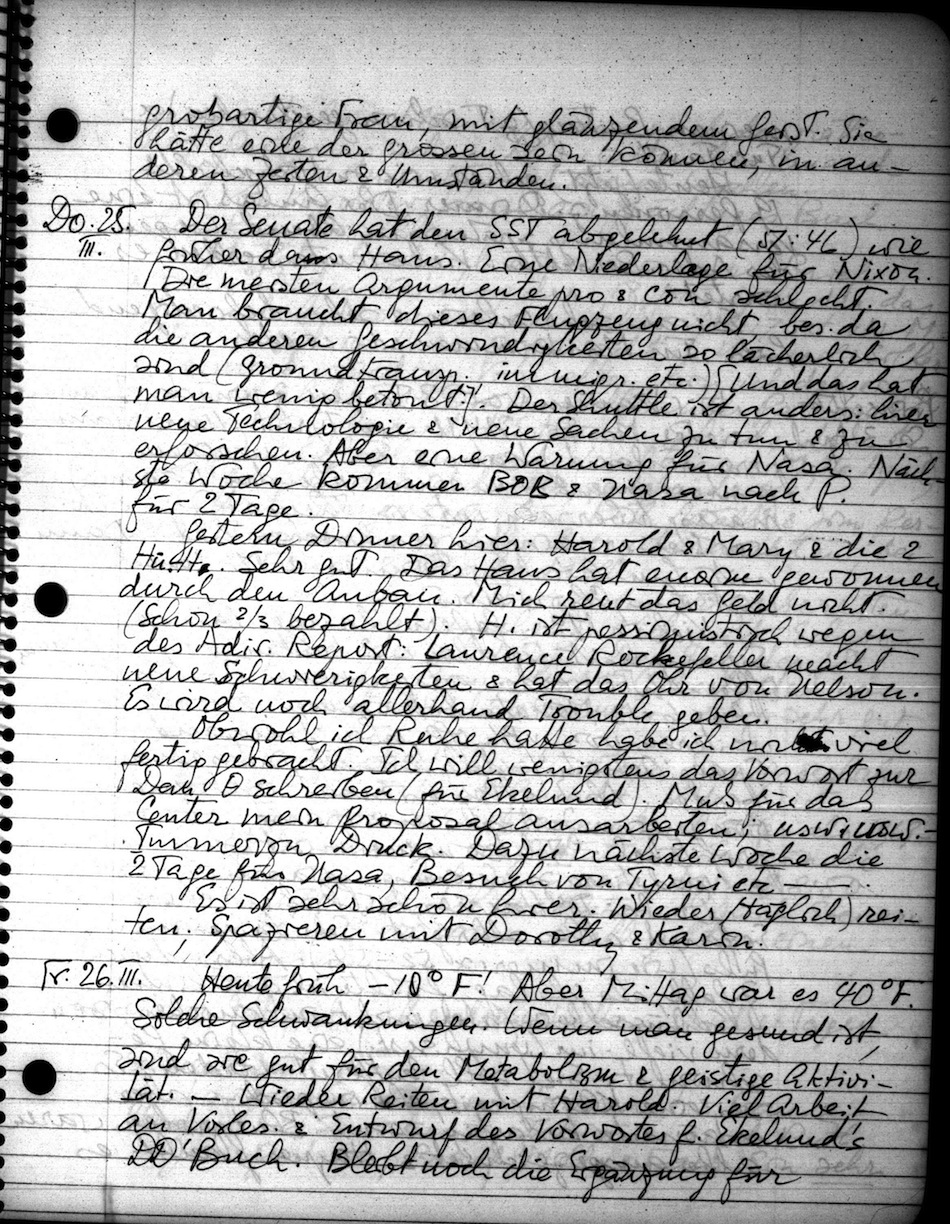 großartige Frau, mit glänzendem Geist. Sie
hätte eine der grossen sein können, in an-
deren Zeiten & Umständen.
Do. 25. Der Senate hat den SST abgelehnt (51:46) wie
III. früher das Haus. Eine Niederlage für Nixon.
Die meisten Argumente pro & con schlecht.
Man braucht dieses Flugzeug nicht bes. da
die anderen Geschwindigkeiten so lächerlich
sind (ground transp. immigr. etc.) [Und das hat
man wenig betont]. Der Shuttle ist anders: hier
neue Technologie & neue Sachen zu tun & zu
erforschen. Aber eine Warnung für Nasa. Näch-
ste Woche kommen BOB & Nasa nach P.
für 2 Tage.
Gestern Dinner hier: Harold & Mary & die 2
Hütt. Sehr gut. Das Haus hat enorm gewonnen
durch den Anbau. Mich reut das Geld nicht.
(Schon 2/3 bezahlt). H. ist pessimistisch wegen
des Adir. Report: Laurence Rockefeller macht
neue Schwierigkeiten & hat das Ohr von Nelson.
Es wird noch allerhand Trouble geben.
Obwohl ich Ruhe hatte habe ich nicht viel
fertig gebracht. Ich will wenigstens das Vorwort zur
Dan O schreiben (für Ekelund). Muß für das
Center mein Proposal ausarbeiten; usw. usw. -
Immerzu Druck. Dazu nächste Woche die
2 Tage für Nasa, Besuch von Tyrni etc —.
Es ist sehr schön hier. Wieder (täglich) rei-
ten; Spazieren mit Dorothy & Karin.
Fr. 26. III. Heute früh -10° F! Aber Mittag war es 40° F.
Solche Schwankungen. Wenn man gesund ist,
sind sie gut für den Metabolism & geistige Aktivi-
tät. — Wieder Reiten mit Harold. Viel Arbeit
an Vorles. & Entwurf des Vorwortes f. Ekelund's
DO' Buch. Bleibt noch die Ergänzung für